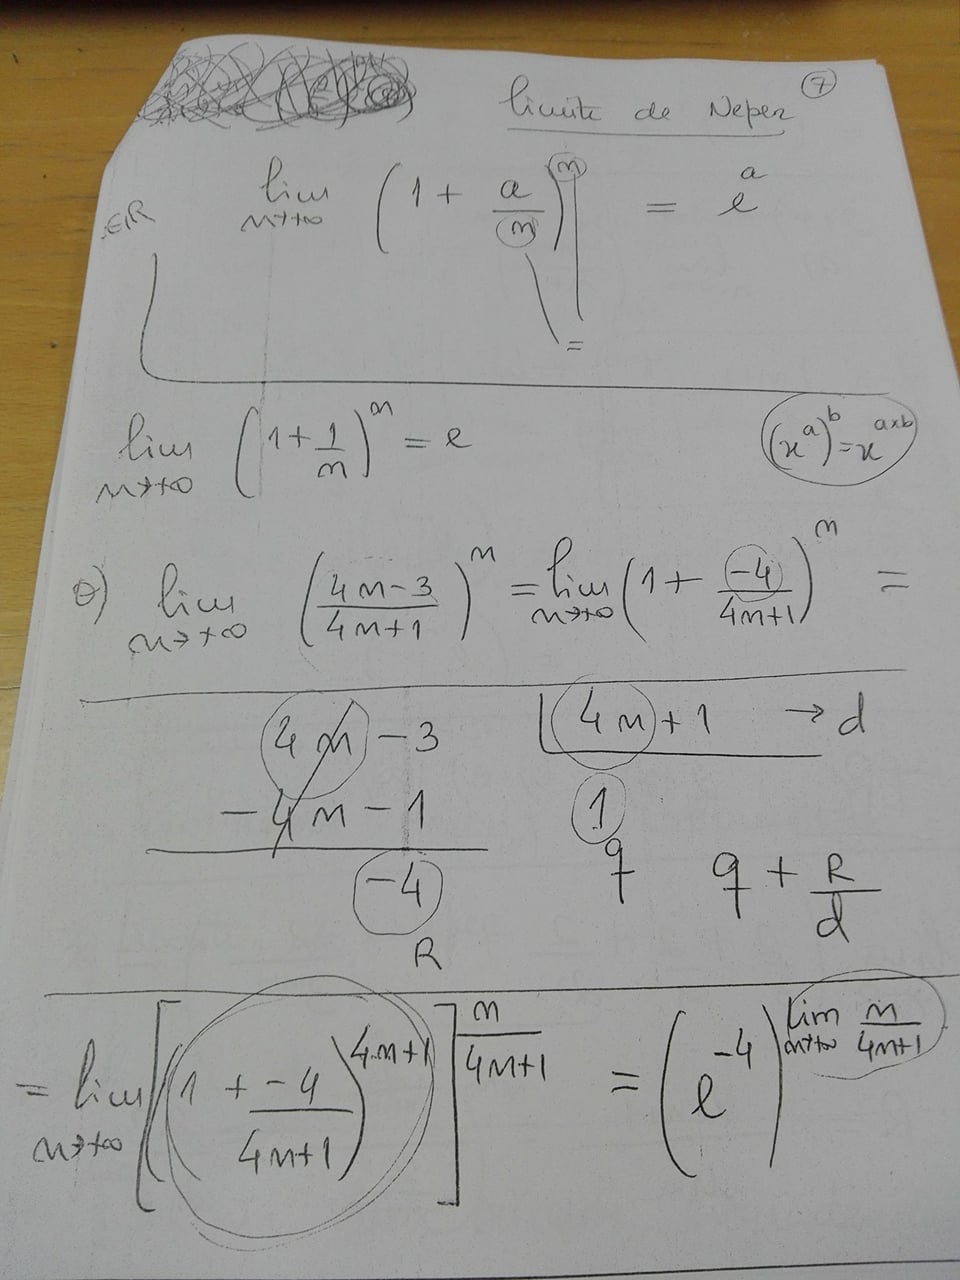 7
limite de Neper
lim n→+∞ (1 + a/n)^n = e^a
∈R
=
lim n→+∞ (1 + 1/n)^n = e
(x^a)^b = x^(a×b)
lim n→+∞ ((4n-3)/(4n+1))^n = lim n→+∞ (1 + (-4)/(4n+1))^n =
4n - 3 4n + 1 → d
-4n - 1 1
-4 q q + R/d
R
= lim n→+∞ [(1 + (-4)/(4n+1))^(4n+1)]^(n/(4n+1)) = (e^-4)^(lim n→+∞ n/(4n+1))